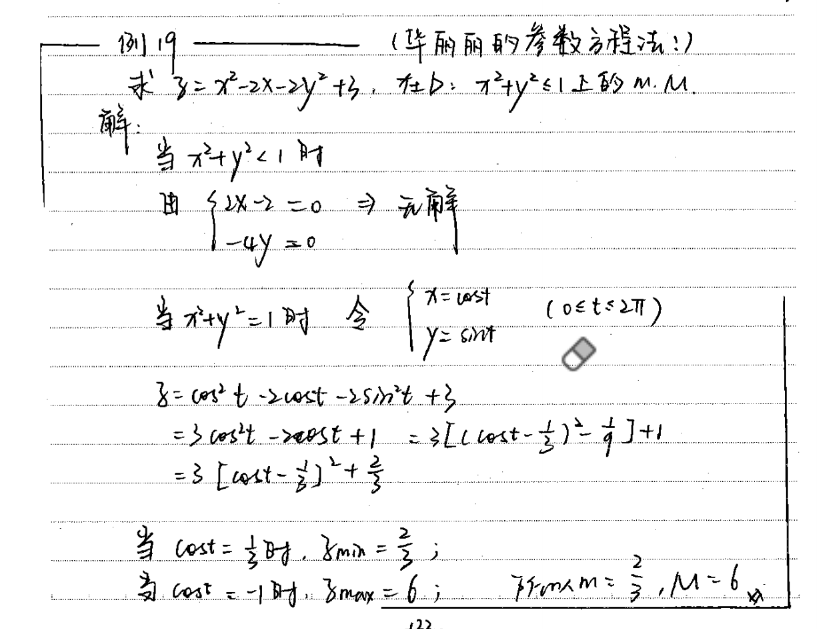 例19 (毕丽丽的参数方程法!)
求 z=x²-2x-2y²+3, 在D: x²+y²≤1上的m.M.
解:
当 x²+y²<1 时
由 {2x-2=0 ⇒ 无解
-4y=0
当x²+y²=1时 令 {x=cost (0≤t≤2π)
y=sint
z=cos²t-2cost-2sin²t+3
=3cos²t-2cost+1 =3[(cost-1/3)²-1/9]+1
=3[cost-1/3]²+2/3
当 cost=1/3时, zmin=2/3;
当 cost=-1时, zmax=6; 所以m=2/3, M=6